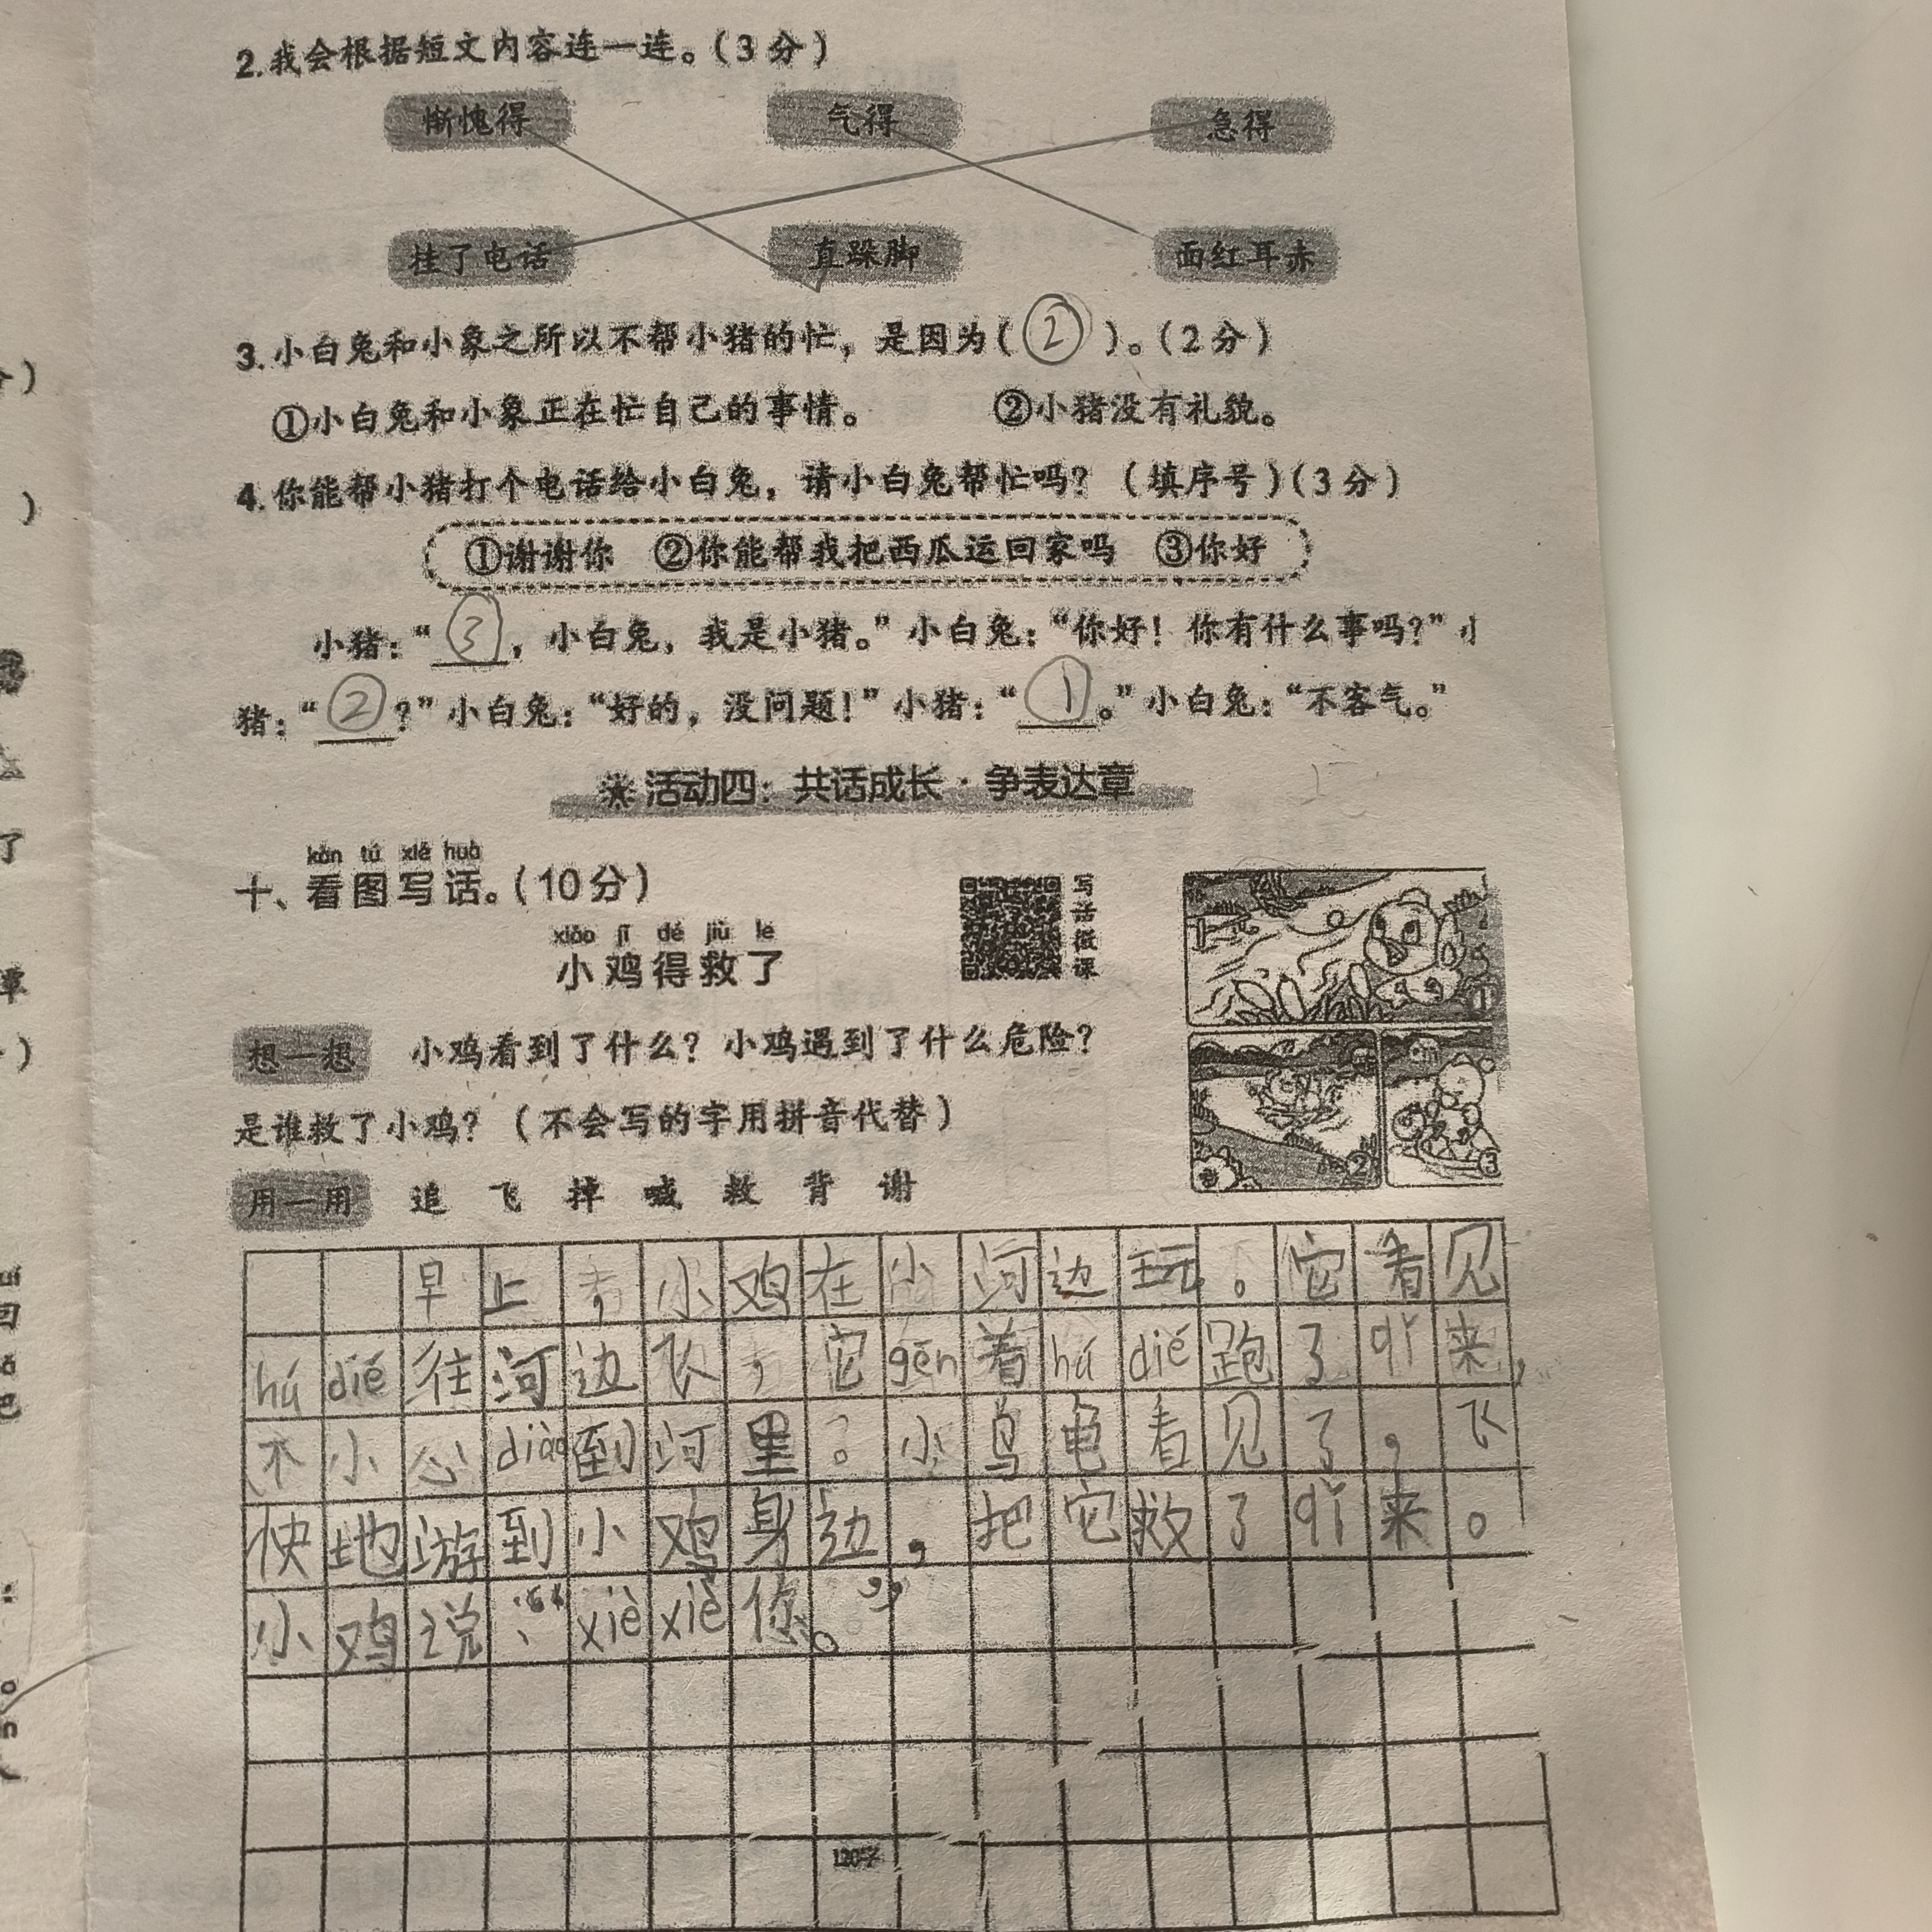 2.我会根据短文内容连一连。(3分)
惭愧得 气得 急得
挂了电话 直跺脚 面红耳赤
3.小白兔和小象之所以不帮小猪的忙，是因为(②)。(2分)
①小白兔和小象正在忙自己的事情。 ②小猪没有礼貌。
4.你能帮小猪打个电话给小白兔，请小白兔帮忙吗？(填序号)(3分)
①谢谢你 ②你能帮我把西瓜运回家吗 ③你好
小猪：“③，小白兔，我是小猪。”小白兔：“你好！你有什么事吗？”小
猪：“②？”小白兔：“好的，没问题！”小猪：“①。”小白兔：“不客气。”
活动四：共话成长·争表达章
kàn tú xiě huà
十、看图写话。(10分)
写话微课
xiǎo jī dé jiù le
小鸡得救了
①
②
③
想一想 小鸡看到了什么？小鸡遇到了什么危险？
是谁救了小鸡？(不会写的字用拼音代替)
用一用 追 飞 掉 喊 救 背 谢
早上，小鸡在小河边玩。它看见
hú dié 往河边飞，它gēn着hú dié跑了qǐ来，
不小心diào到河里。小乌龟看见了，飞
快地游到小鸡身边，把它救了qǐ来。
小鸡说：“xiè xiè你。”
120字